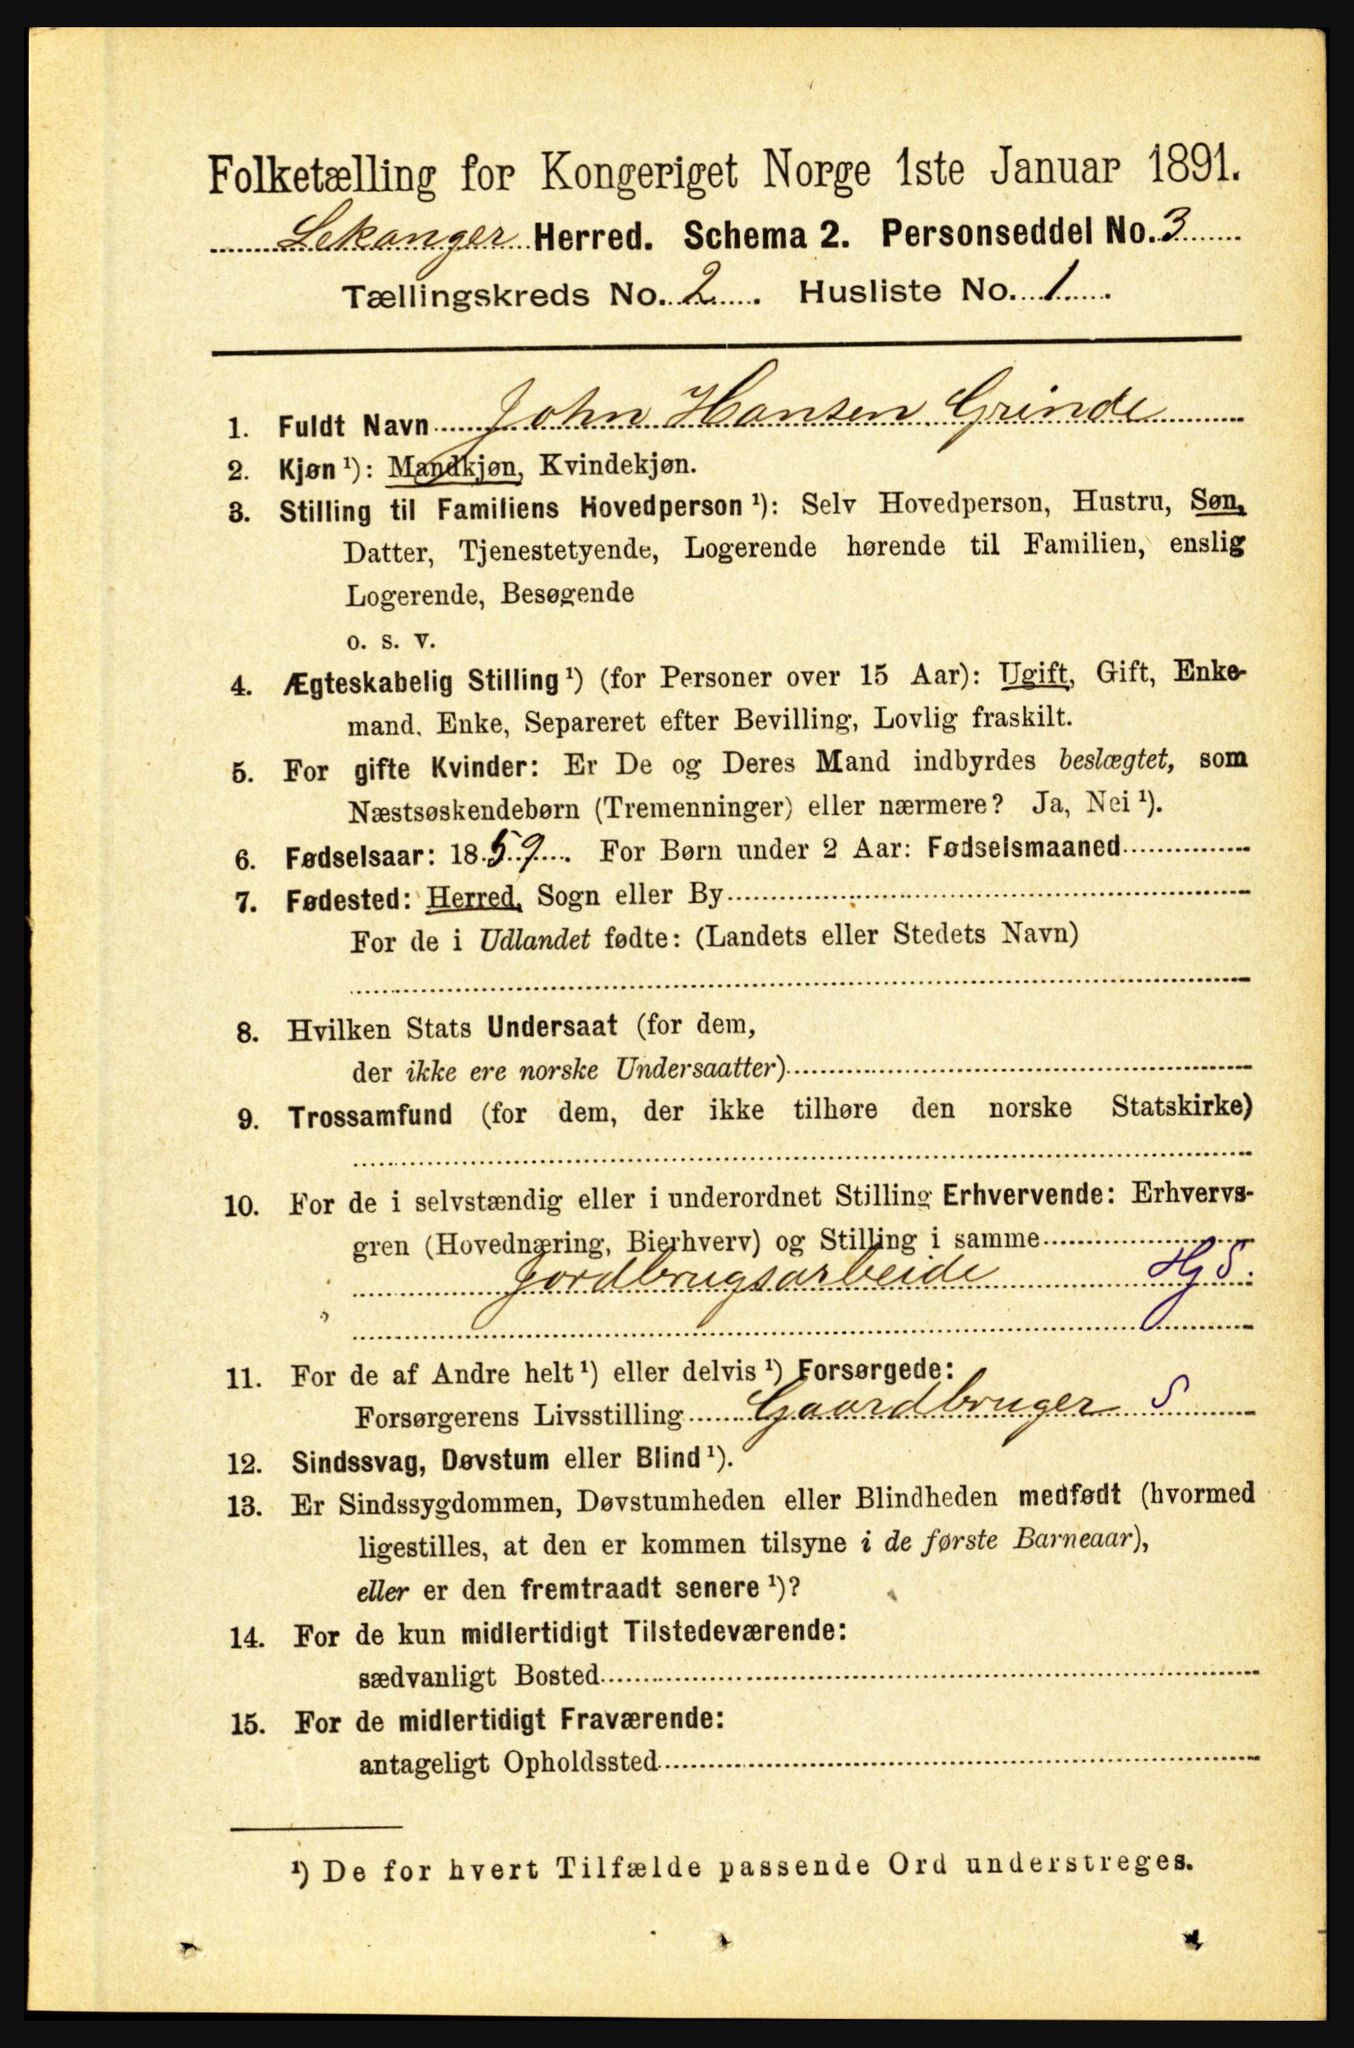 Folketælling for Kongeriget Norge 1ste Januar 1891.
Lekanger Herred. Schema 2. Personseddel No. 3
Tællingskreds No. 2. Husliste No. 1
1. Fuldt Navn John Hansen Grinde
2. Kjøn¹): Mandkjøn, Kvindekjøn.
3. Stilling til Familiens Hovedperson¹): Selv Hovedperson, Hustru, Søn,
Datter, Tjenestetyende, Logerende hørende til Familien, enslig
Logerende, Besøgende
o. s. v.
4. Ægteskabelig Stilling¹) (for Personer over 15 Aar): Ugift, Gift, Enke-
mand, Enke, Separeret efter Bevilling, Lovlig fraskilt.
5. For gifte Kvinder: Er De og Deres Mand indbyrdes beslægtet, som
Næstsøskendebørn (Tremenninger) eller nærmere? Ja, Nei¹).
6. Fødselsaar: 1859. For Børn under 2 Aar: Fødselsmaaned
7. Fødested: Herred, Sogn eller By
For de i Udlandet fødte: (Landets eller Stedets Navn)
8. Hvilken Stats Undersaat (for dem,
der ikke ere norske Undersaatter)
9. Trossamfund (for dem, der ikke tilhøre den norske Statskirke)
10. For de i selvstændig eller i underordnet Stilling Erhvervende: Erhvervs-
gren (Hovednæring, Bierhverv) og Stilling i samme
Jordbrugsarbeide HjS.
11. For de af Andre helt¹) eller delvis¹) Forsørgede:
Forsørgerens Livsstilling Gaardbruger S
12. Sindssvag, Døvstum eller Blind¹).
13. Er Sindssygdommen, Døvstumheden eller Blindheden medfødt (hvormed
ligestilles, at den er kommen tilsyne i de første Barneaar),
eller er den fremtraadt senere¹)?
14. For de kun midlertidigt Tilstedeværende:
sædvanligt Bosted
15. For de midlertidigt Fraværende:
antageligt Opholdssted
¹) De for hvert Tilfælde passende Ord understreges.